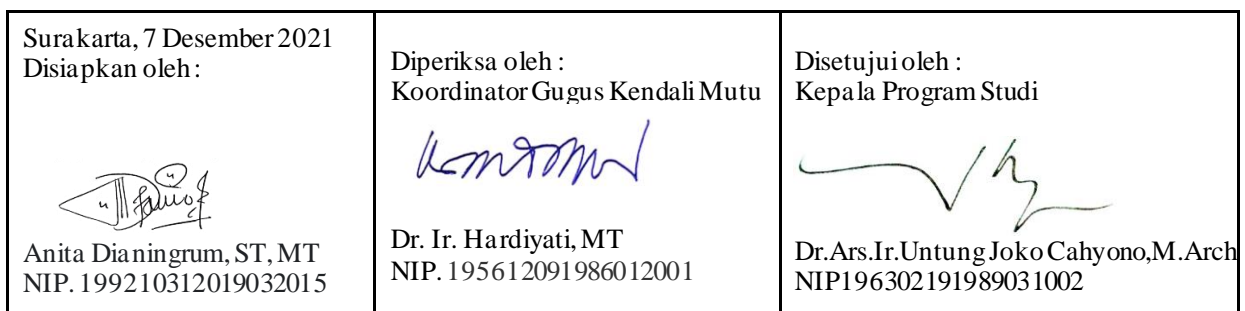 Surakarta, 7 Desember 2021
Disiapkan oleh :
Anita Dianingrum, ST, MT
NIP. 199210312019032015
Diperiksa oleh :
Koordinator Gugus Kendali Mutu
Dr. Ir. Hardiyati, MT
NIP. 195612091986012001
Disetujui oleh :
Kepala Program Studi
Dr.Ars.Ir.Untung Joko Cahyono,M.Arch
NIP196302191989031002